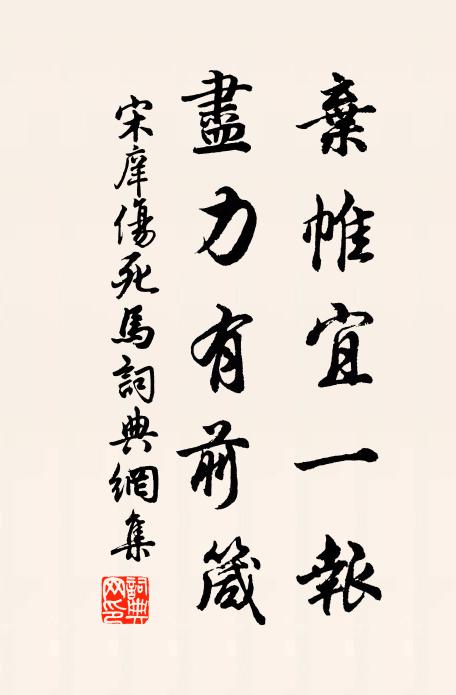 棄帷宜一報
盡力有前箴
宋庠傷死馬詞典網集
詞典网印